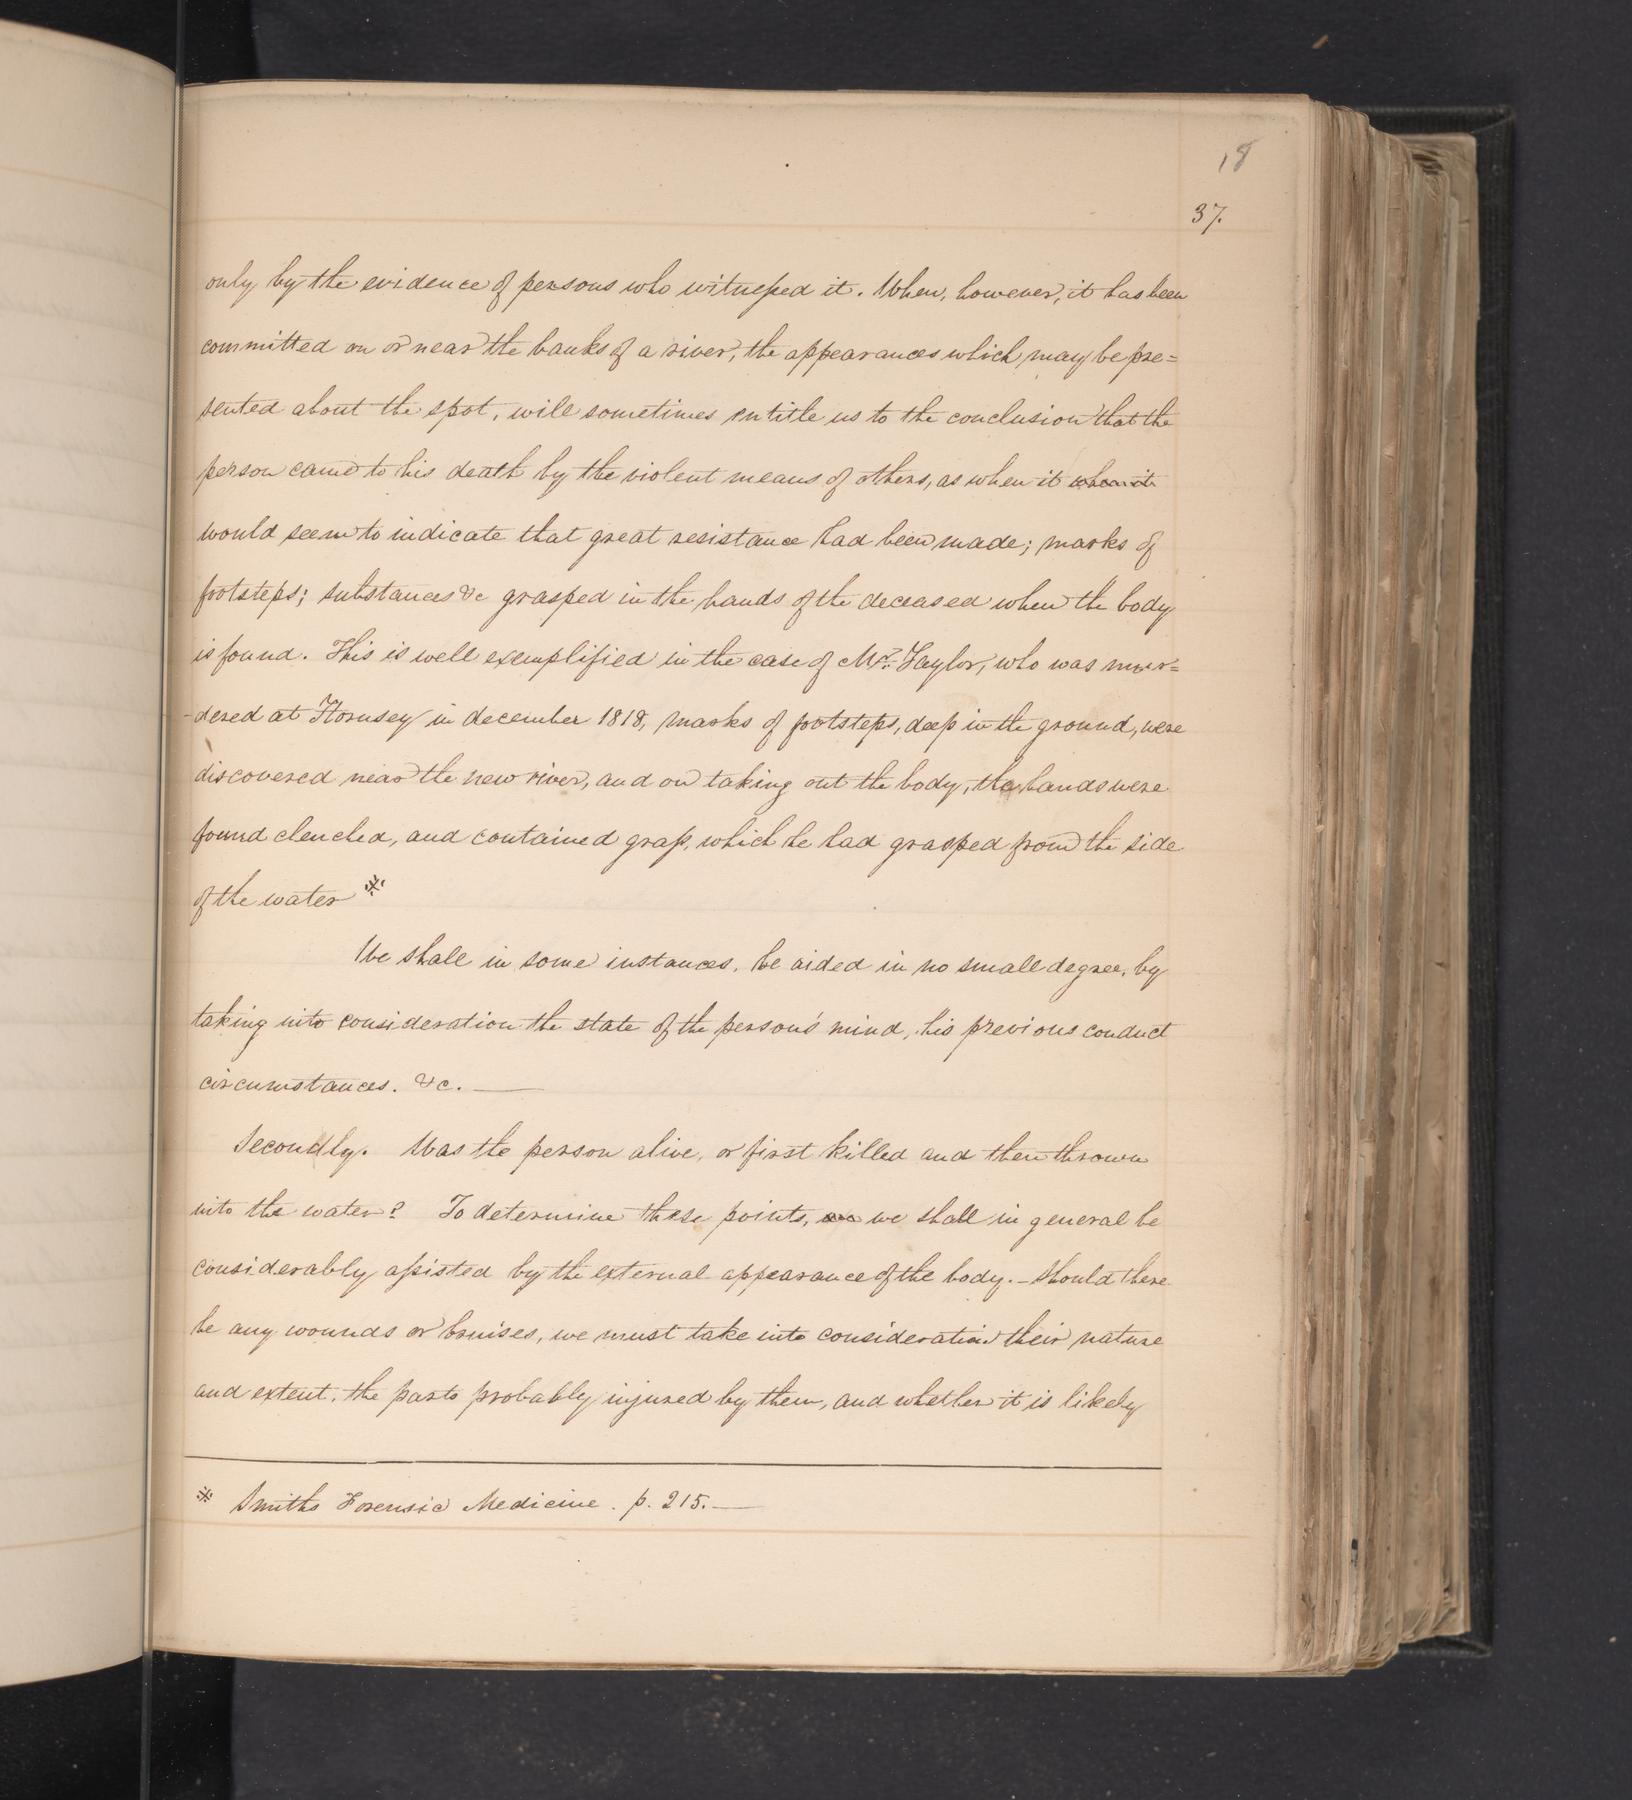 18
37.
only by the evidence of persons who witnessed it. When, however, it has been
committed on or near the banks of a river, the appearances which may be pre=
sented about the spot, will sometimes entitle us to the conclusion that the
person came to his death by the violent means of others, as when it when it
would seem to indicate that great resistance had been made; marks of
footsteps; substances &c grasped in the hands of the deceased when the body
is found. This is well exemplified in the case of Mr. Taylor, who was mur=
-dered at Hornsey in december 1818, marks of footsteps, deep in the ground, were
discovered near the new river, and on taking out the body, the hands were
found clenched, and contained grass, which he had grasped from the side
of the water ※
We shall in some instances, be aided in no small degree, by
taking into consideration the state of the person's mind, his previous conduct
circumstances. &c. —
Secondly. Was the person alive, or first killed and then thrown
into the water? To determine these points, we shall in general be
considerably assisted by the external appearance of the body. – Should there
be any wounds or bruises, we must take into consideration their nature
and extent, the parts probably injured by them, and whether it is likely
※ Smiths Forensic Medicine. p. 215. —